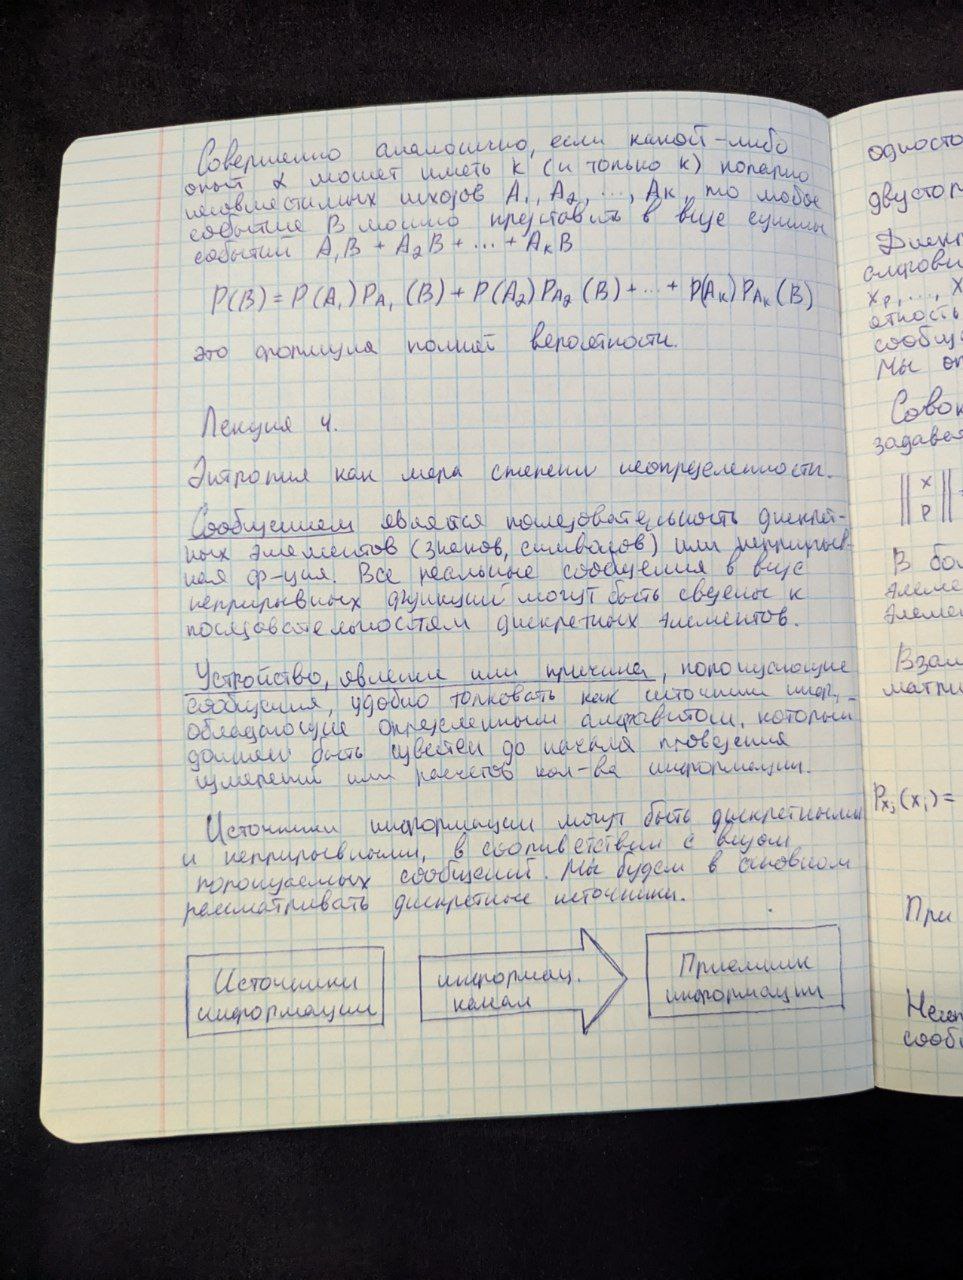 Совершенно аналогично, если какой-либо
опыт α может иметь k (и только k) попарно
несовместимых исходов A₁, A₂, ..., Aк, то любое
событие B можно представить в виде суммы
событий A₁B + A₂B + ... + AкB
P(B) = P(A₁)P_A₁(B) + P(A₂)P_A₂(B) + ... + P(Aк)P_Aк(B)
это формула полной вероятности.
Лекция 4.
Энтропия как мера степени неопределенности.
Сообщением является последовательность дискрет-
ных элементов (знаков, символов) или непрерыв-
ная ф-ция. Все реальные сообщения в виде
неприрывных функций могут быть сведены к
последавательностям дискретных элементов.
Устройство, явление или причина, порождающие
сообщения, удобно толковать как источники инф.,
обладающие определенным алфавитом, который
должен быть известен до начала проведения
измерений или расчетов кол-ва информации.
Источники информации могут быть дискретными
и неприрывными, в соответствии с видом
порождаемых сообщений. Мы будем в основном
рассматривать дискретные источники.
Источники
информации
информац.
канал
Приемник
информации
односто
двустор
x
p
В бол
элеме
элемен
Взаи
матри
P_xⱼ(xᵢ) =
При
сооб
Мы оп
Совок
задает